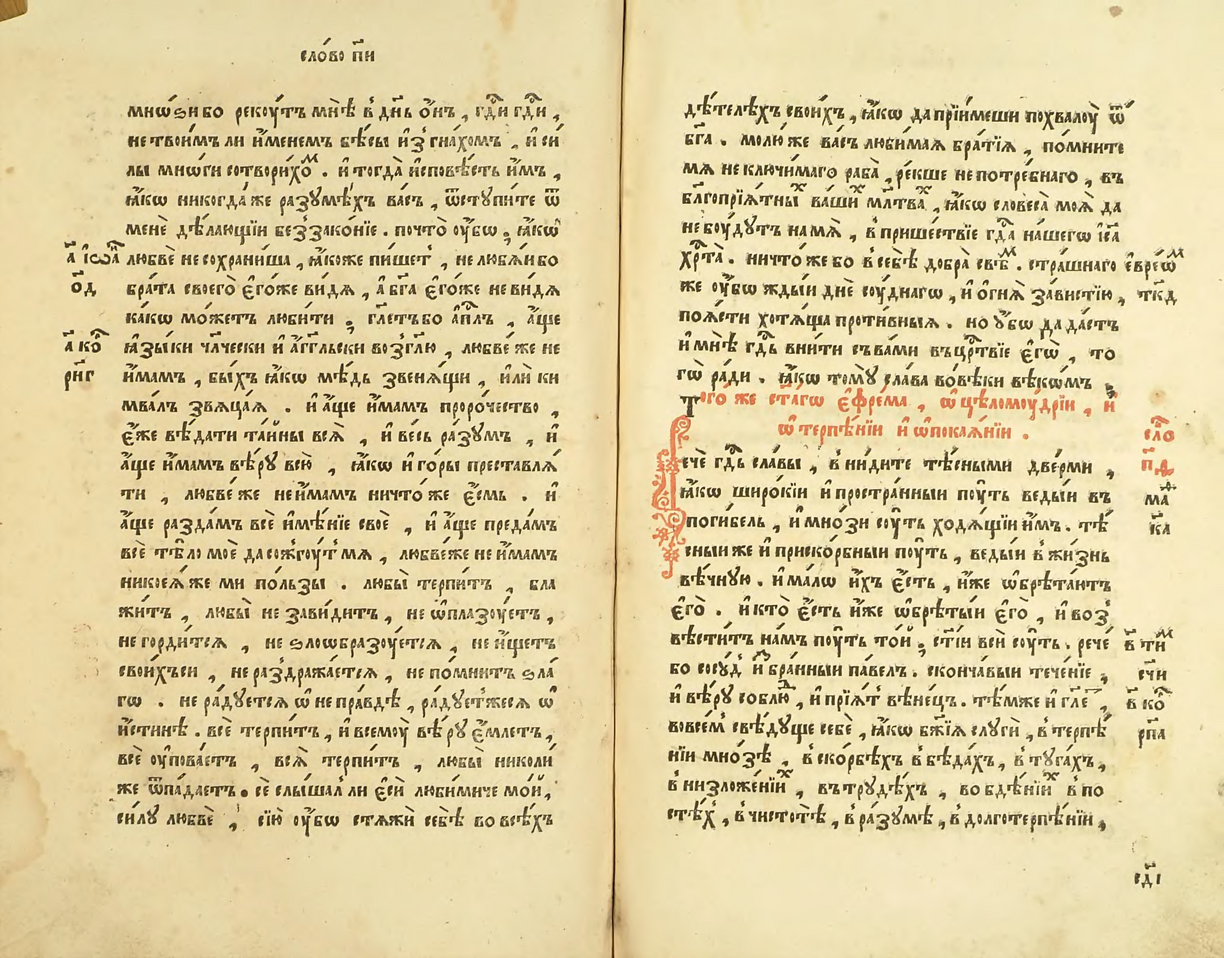 сло́во п҃и
мнѡ́ѕи бо рекꙋ́тъ мнѣ̀ в̾ дн҃ь ѻ́нъ , гд҃и гд҃и ,
не твои́мъ ли и҆́менемъ бѣ́сы и҆з̾гна́хомъ , и҆ си
лы мнѡ́ги сотворихо́ᴹ . и҆ тогда̀ и҆сповѣ́сть и҆̀мъ ,
ꙗ҆́кѡ никогда́же разꙋмѣ́хъ ва́съ , ѿстꙋпи́те ѿ
менѐ дѣ́лающїи без̾зако́нїе . почто̀ ᲂу҆́бѡ , ꙗ҆́кѡ
а҃ і҆ѡа҃ любвѐ не сохрани́ша , ꙗ҆́коже пи́шет̾ , не любѧ́и бо
о҃д бра́та своего̀ є҆го́же ви́дѧ , а҆ бг҃а є҆го́же не ви́дѧ
ка́кѡ мо́жетъ люби́ти , гл҃етъ бо а҆пл҃ъ , а҆́ще
а҃ ко ꙗ҆зы́ки чл҃чески и҆ а҆́гг҃льски возгл҃ю , любве́ же не
рн҃г и҆́мамъ , бы́хъ ꙗ҆́кѡ мѣ́дь звенѧ́щи , и҆лѝ ки
мва́лъ звѧца́ѧ . и҆ а҆́ще и҆́мамъ проро́чество ,
є҆́же вѣ́дати та́йны всѧ̀ , и҆ ве́сь ра́зꙋм̾ , и҆
а҆́ще и҆́мамъ вѣ́рꙋ всю̀ , ꙗ҆́кѡ и҆ го́ры преставлѧ́
ти , любве́ же не и҆́мамъ ничто́же є҆́смь . и҆
а҆́ще разда́мъ всѐ и҆мѣ́нїе своѐ , и҆ а҆́ще преда́мъ
всѐ тѣ́ло моѐ да сожгꙋ́т̾ мѧ , любве́же не и҆́мамъ
никоеѧ́же ми по́льзы . любы̀ терпи́тъ , бла
жи́тъ , любы̀ не зави́дитъ , не ѡ҆плазᲂу́етъ ,
не горди́тсѧ , не ѕлоѡбразᲂу́етсѧ , не и҆́щетъ
свои́хъ си , не раздража́етсѧ , не помни́тъ ѕла́
гѡ . не ра́дꙋетсѧ ѡ҆ непра́вдѣ , ра́дꙋет̾жесѧ ѡ҆
и҆́стинѣ . всѐ терпи́тъ , и҆ всемᲂу̀ вѣ́рꙋ є҆́млетъ ,
всѐ ᲂу҆пова́етъ , всѧ̀ терпи́тъ , любы̀ николи́
же ѿпа́даетъ . сѐ слы́шал ли є҆сѝ люби́миче мо́й ,
си́лꙋ любвѐ , сїю̀ ᲂу҆́бѡ стѧжѝ себѣ̀ во всѣ́хъ
дѣ́телѣхъ свои́хъ , ꙗ҆́кѡ да прїи́меши похвалᲂу̀ ѿ
бг҃а . молю́ же ва́съ люби́маѧ бра́тїѧ , помни́те
мѧ не ключи́маго раба̀ , ре́кше непотре́бнаго , въ
бл҃гопрїѧ́тныˣ ва́шиˣ мл҃тваˣ , ꙗ҆́кѡ словеса̀ моѧ̀ да
не бᲂу́дꙋтъ на мѧ̀ , в̾ прише́ствїе гд҃а на́шегѡ і҆с҃а
хрⷭ҇та̀ . ничто́же бо в̾ себѣ̀ добра̀ свѣ́ᴹ . стра́шнаго є҆вре́ѡᴹ
же ᲂу҆́бѡ жды́и днѐ сᲂу́днагѡ , и҆ ѻ҆гнѧ̀ за́вистїю , тк҃д
поѧ́сти хотѧ́ща проти́вныѧ . но ᲂу҆́бѡ да да́стъ
и҆ мнѣ̀ гдⷭ҇ь вни́ти съ ва́ми въ црⷭ҇твїе є҆гѡ̀ , то
гѡ̀ ра́ди . ꙗ҆́кѡ томꙋ̀ сла́ва во вѣ́ки вѣкѡ́мъ .
Того́ же ст҃а́гѡ є҆фре́ма , ѡ҆ цѣломᲂу́дрїи , и҆
ѡ҆ терпѣ́нїи и҆ ѡ҆ покаѧ́нїи . сло́
Рече́ гдⷭ҇ь сла́вы , в̾ни́дите тѣ́сными две́рми , п҃д
ꙗ҆́кѡ широ́кїи и҆ простра́нныи пᲂу́ть веды́и въ маⷴ
поги́бель , и҆ мно́зи сᲂу́ть ходѧ́щїи и҆́мъ . тѣ́ к҃а
сныи же и҆ приско́рбныи пᲂу́ть , веды́и в̾ жи́знь
вѣ́чнꙋю . и҆ ма́лѡ и҆́хъ є҆́сть , и҆̀же ѡ҆брѣта́ютъ
є҆го̀ . и҆ кто̀ є҆́сть и҆̀же ѡ҆брѣты́и є҆го̀ , и҆ воз̾
вѣсти́тъ на́мъ пᲂу́ть то́й , ст҃і́и всѝ сᲂу́ть . рече́ в҃ тиᴹ
бо сосꙋ́д̾ и҆збра́нныи па́велъ . сконча́выи тече́нїе , сч҃и
и҆ вѣ́рꙋ соблю́ⷣ , и҆ прїѧ́т̾ вѣне́цъ . тѣ́мже и҆ гл҃е , в҃ ко
во всем̾ свѣ́дꙋще себѐ , ꙗ҆́кѡ бж҃їѧ слꙋгѝ , в̾ терпѣ́ рп҃а
нїи мно́зѣ , в̾ ско́рбехъ в̾ бѣда́хъ , в̾ тꙋга́хъ ,
в̾ низложе́нїиˣ , въ трꙋдѣ́хъ , во бдѣ́нїиˣ в̾ по
стѣ́х̾ , в̾ чистотѣ̀ , в̾ ра́зꙋмѣ , в̾ долготерпѣ́нїи ,
сд҃і